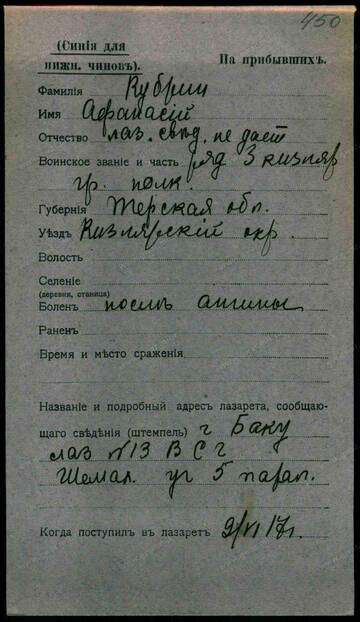 450
(Синія для
нижн. чиновъ).
На прибывшихъ.
Фамилія Кубрин
Имя Афанасій
Отчество лаз. свѣд. не дает
Воинское званіе и часть ряд 3 кизляр
гр. полк.
Губернія Терская обл.
Уѣздъ Кизлярскій окр.
Волость
Селеніе
(деревня, станица)
Боленъ послѣ ангины
Раненъ
Время и мѣсто сраженія
Названіе и подробный адресъ лазарета, сообщаю-
щаго свѣдѣнія (штемпель) г Баку
лаз №13 В С г
Шемах. уг 5 парал.
Когда поступилъ въ лазаретъ 9/VI 17г.